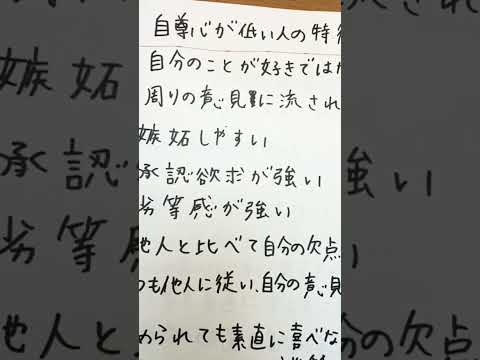 自尊心が低い人の特
自分のことが好きでは
周りの意見に流され
嫉妬しやすい
承認欲求が強い
劣等感が強い
他人と比べて自分の欠点
も他人に従い、自分の意見
められても素直に喜べな